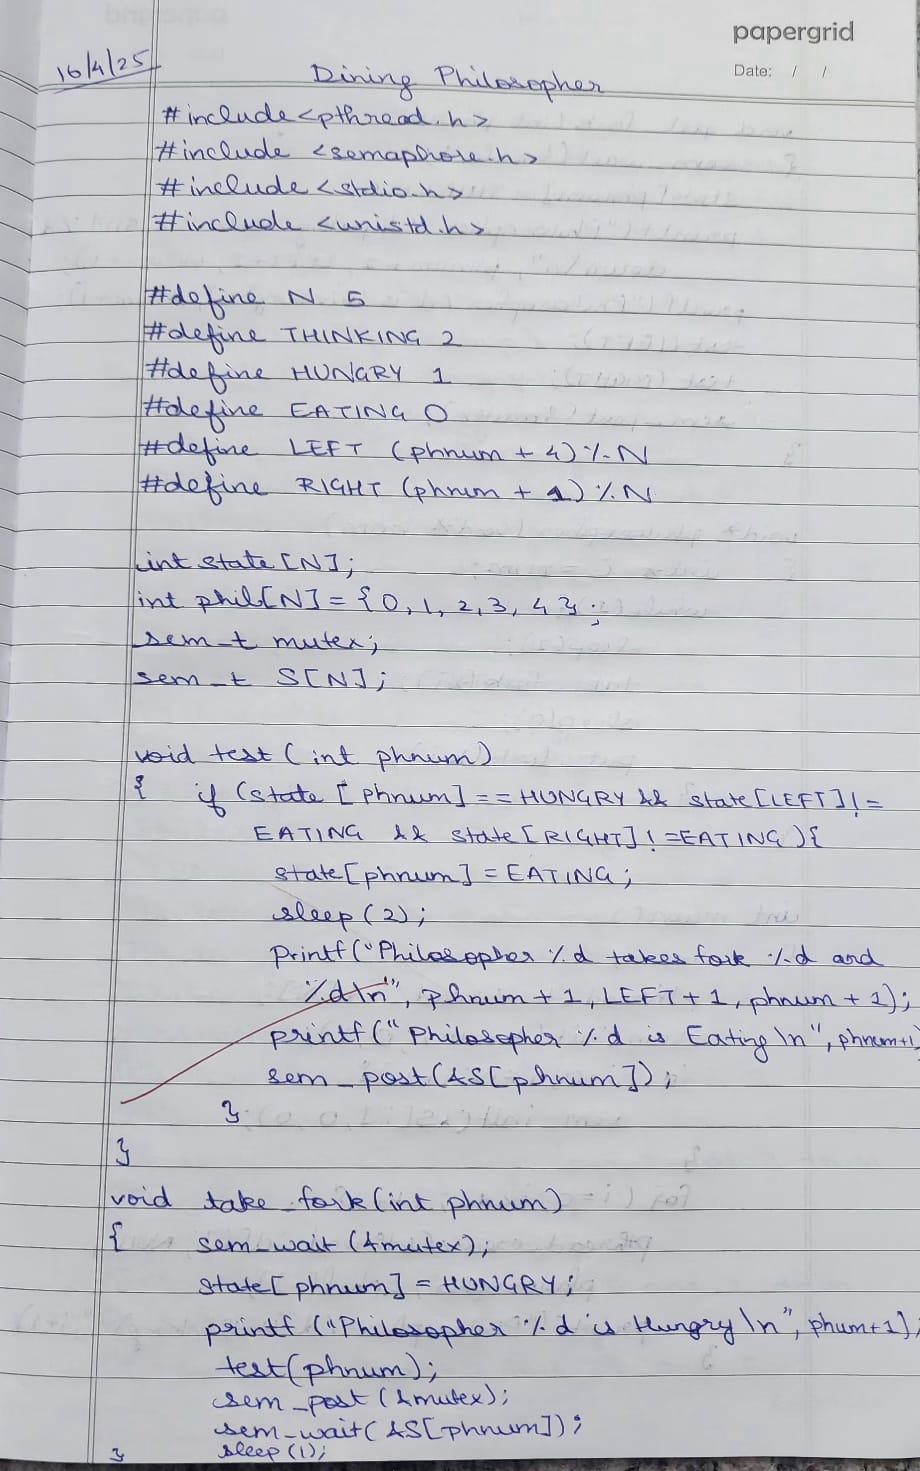 papergrid
Date: / /
16/4/25
Dining Philosopher
#include<pthread.h>
#include <semaphore.h>
#include <stdio.h>
#include <unistd.h>
#define N 5
#define THINKING 2
#define HUNGRY 1
#define EATING 0
#define LEFT (phnum + 4) % N
#define RIGHT (phnum + 1) % N
int state [N];
int phil[N] = {0, 1, 2, 3, 4};
sem_t mutex;
sem_t S[N];
void test (int phnum)
{ if (state [phnum] == HUNGRY && state [LEFT] !=
EATING && state [RIGHT] != EATING ){
state[phnum] = EATING;
sleep (2);
printf("Philosopher %d takes fork %d and
%d\n", phnum + 1, LEFT + 1, phnum + 1);
printf(" Philosopher %d is Eating \n", phnum+1)
sem_post(&S[phnum]);
}
}
void take_fork(int phnum)
{ sem_wait (&mutex);
state[phnum] = HUNGRY;
printf ("Philosopher %d is Hungry \n", phum+1);
test(phnum);
sem_post (&mutex);
sem_wait( &S[phnum]);
} sleep (1);